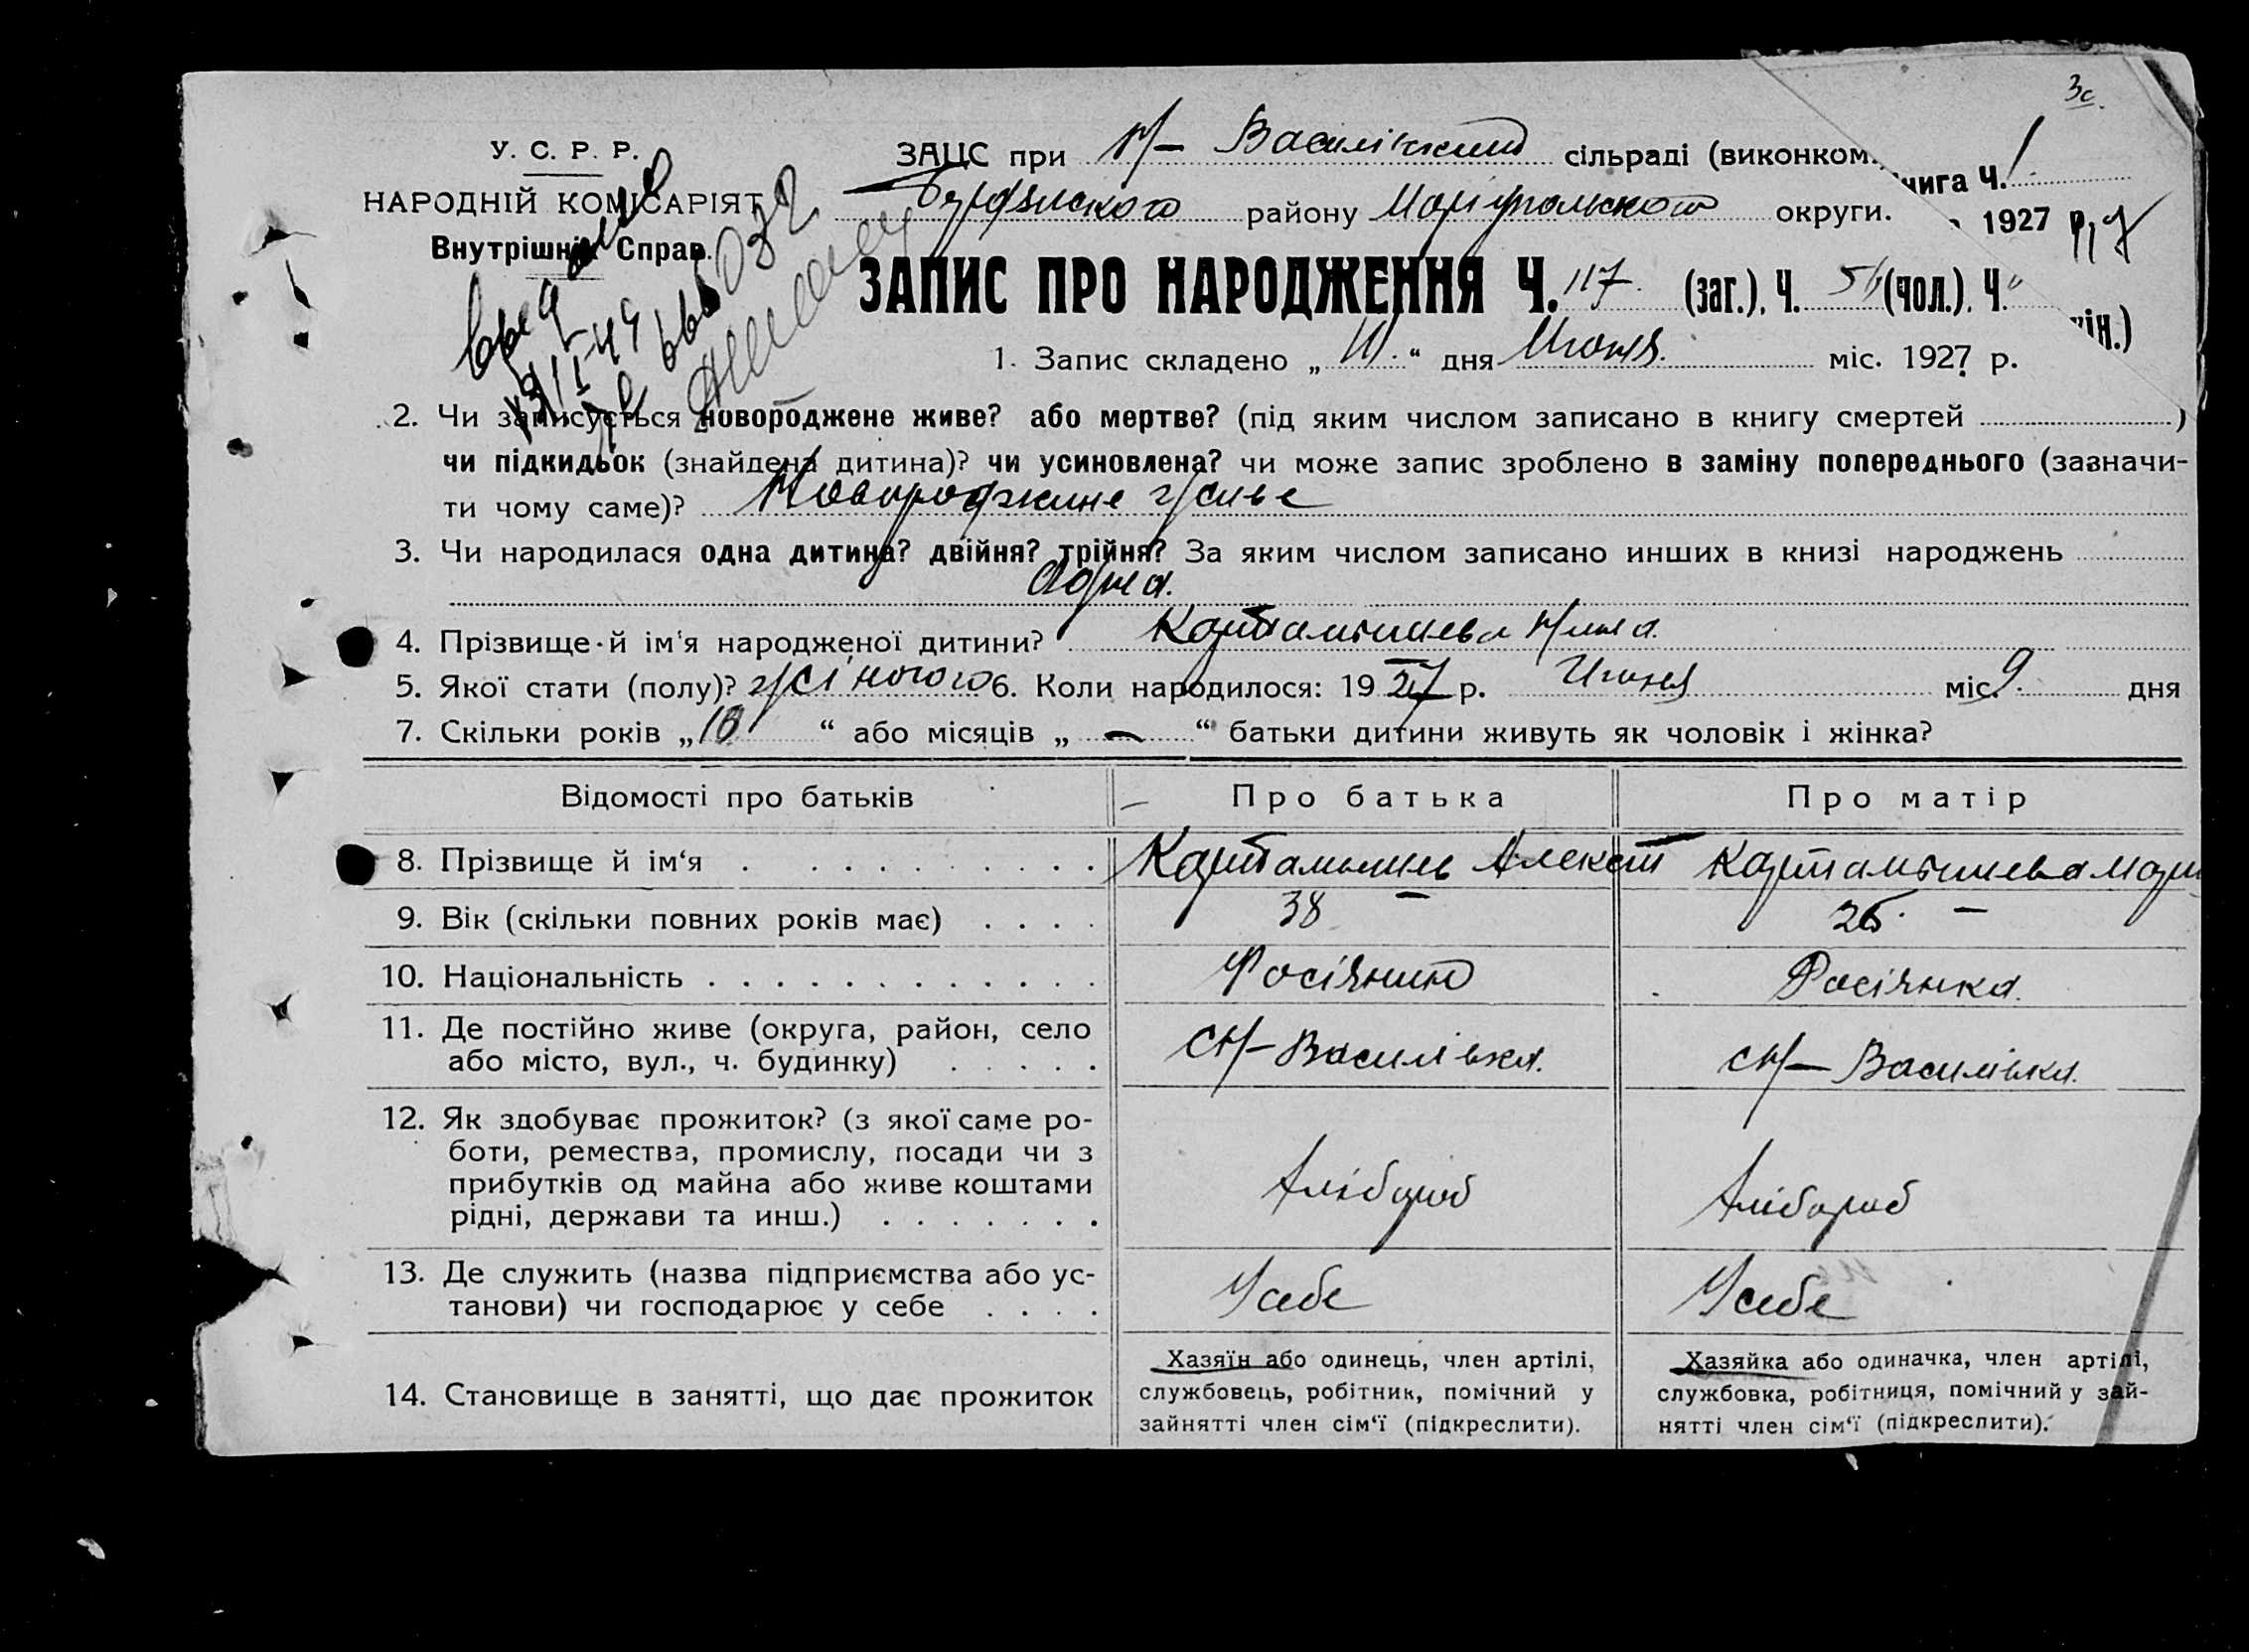 3с.
У. С. Р. Р.
НАРОДНІЙ КОМІСАРІЯТ
Внутрішніх Справ.
ЗАЦС при Н-Василівський сільраді (виконком.
району Маріупольского округи.
книга Ч. 1
1927 р.
ЗАПИС ПРО НАРОДЖЕННЯ Ч. 117 (заг.), Ч. (чол.), Ч. „ жін.)
1. Запис складено „ “ дня Июня. міс. 1927 р.
2. Чи записується новороджене живе? або мертве? (під яким числом записано в книгу смертей )
чи підкидьок (знайдена дитина)? чи усиновлена? чи може запис зроблено в заміну попереднього (зазначи-
ти чому саме)? Новороджине живе
3. Чи народилася одна дитина? двійня? трійня? За яким числом записано инших в книзі народжень
Одна.
4. Прізвище й ім'я народженої дитини? Картамышева Нина.
5. Якої стати (полу)? жіночого 6. Коли народилося: 1927 р. Июня міс. 9 дня
7. Скільки років „ 10 “ або місяців „ — “ батьки дитини живуть як чоловік і жінка?
Відомості про батьків Про батька Про матір
8. Прізвище й ім‘я Картамышев Алексей Картамышева Мари
9. Вік (скільки повних років має) 38 — 26. —
10. Національність Росіянин Росіянка.
11. Де постійно живе (округа, район, село
або місто, вул., ч. будинку) с Н-Василівка. с Н-Василівка.
12. Як здобуває прожиток? (з якої саме ро-
боти, ремества, промислу, посади чи з
прибутків од майна або живе коштами
рідні, держави та инш.) Хлібороб Хлібороб
13. Де служить (назва підприємства або ус-
танови) чи господарює у себе У себе У себе
14. Становище в занятті, що дає прожиток
Хазяїн або одинець, член артілі,
службовець, робітник, помічний у
зайнятті член сім‘ї (підкреслити).
Хазяйка або одиначка, член артілі,
службовка, робітниця, помічний у зай-
нятті член сім‘ї (підкреслити).